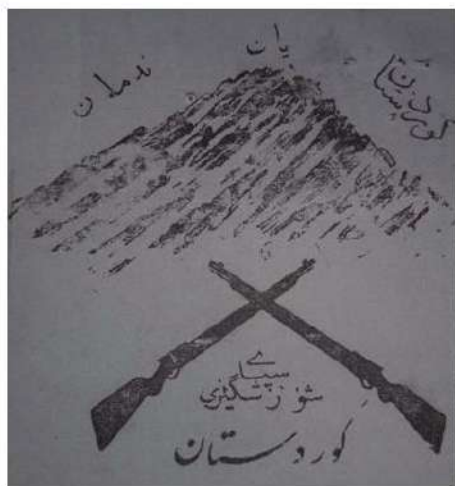 کوردستان یان نەمان
سپاے
شوڕشگێڕی
کوردستان